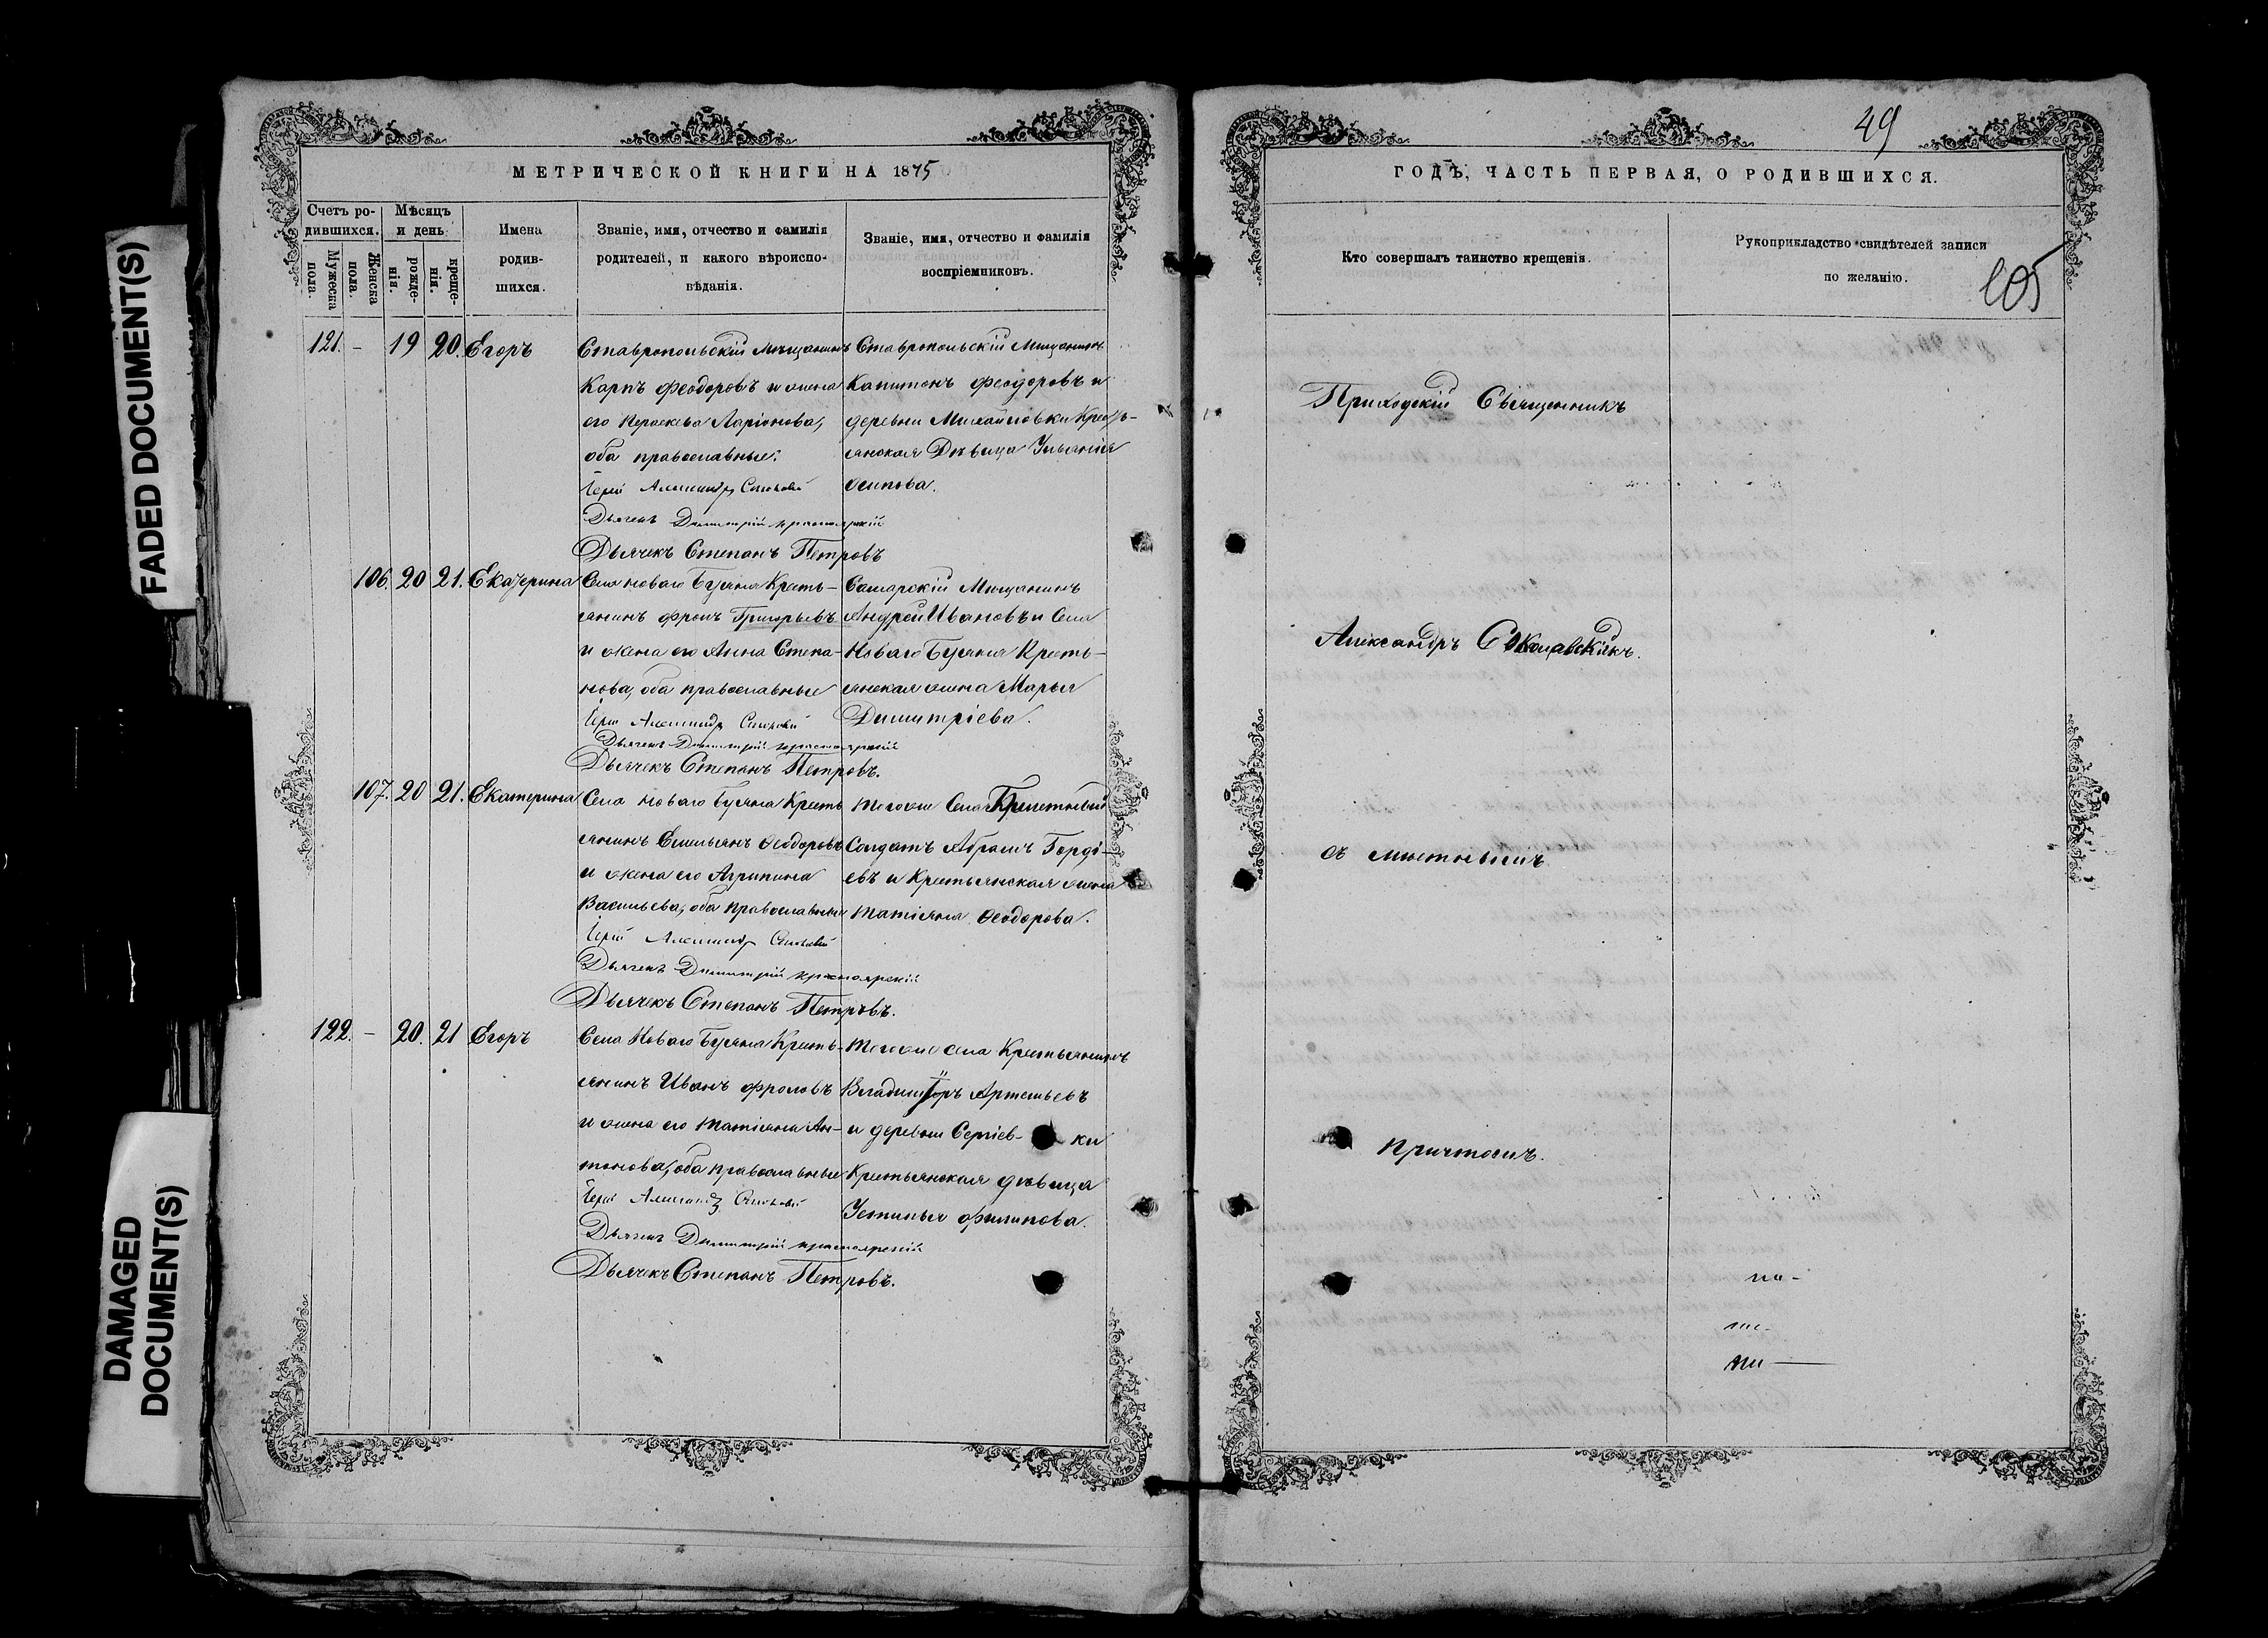 FADED DOCUMENT(S)
DAMAGED
DOCUMENT(S)
МЕТРИЧЕСКОЙ КНИГИ НА 1875
Счетъ ро-
дившихся.
Мужеска
пола.
Женска
пола.
Мѣсяцъ
и день
рожде-
нія.
креще-
нія.
Имена
родив-
шихся.
Званіе, имя, отчество и фамилія
родителей, и какого вѣроиспо-
вѣданія.
Званіе, имя, отчество и фамилія
воспріемниковъ.
121. – 19 20. Егоръ
Ставропольскій мѣщанинъ
Карпъ Феодоровъ и жена
его Параскева Ларіонова,
оба православные.
Іерей Александръ
Дьячекъ Димитрій Красноярскій
Дьячекъ Степанъ Петровъ
Ставропольскій Мѣщанинъ
Капитонъ Феодоровъ и
деревни Михайловки Кресть-
янская Дѣвица Ульянія
Осипова.
106. 20 21. Екатерина
Села Новаго Буяна Кресть-
янинъ Фролъ Григорьевъ
и жена его Анна Степа-
нова, оба православные
Іерей Александръ
Дьячекъ Димитрій Красноярскій
Дьячекъ Степанъ Петровъ.
Самарскій Мѣщанинъ
Андрей Ивановъ и Села
Новаго Буяна Кресть-
янская жена Марья
Димитріева.
107. 20 21. Екатерина
Села Новаго Буяна Кресть
янинъ Емельянъ Ѳеодоровъ
и жена его Агрипина
Васильева, оба православные
Іерей Александръ
Дьячекъ Димитрій Красноярскій
Дьячекъ Степанъ Петровъ.
Тогоже Села
Солдатъ Абрамъ Горді-
евъ и Крестьянская жена
Татіяна Ѳеодорова.
122. – 20. 21 Егоръ
Села Новаго Буяна Кресть-
янинъ Иванъ Фроловъ
и жена его Татіяна Ан-
тонова, оба православные
Іерей Александръ
Дьячекъ Димитрій Красноярскій
Дьячекъ Степанъ Петровъ.
Тогоже села Крестьянинъ
Владиміръ Артемьевъ
и деревни Сергіев- ки
Крестьянская дѣвица
Устинья Филипова.
49
ГОДЪ, ЧАСТЬ ПЕРВАЯ, О РОДИВШИХСЯ.
Кто совершалъ таинство крещенія.
Рукоприкладство свидѣтелей записи
по желанію.
105
Приходскій Священникъ
Александръ
съ мѣстнымъ
Причтомъ.